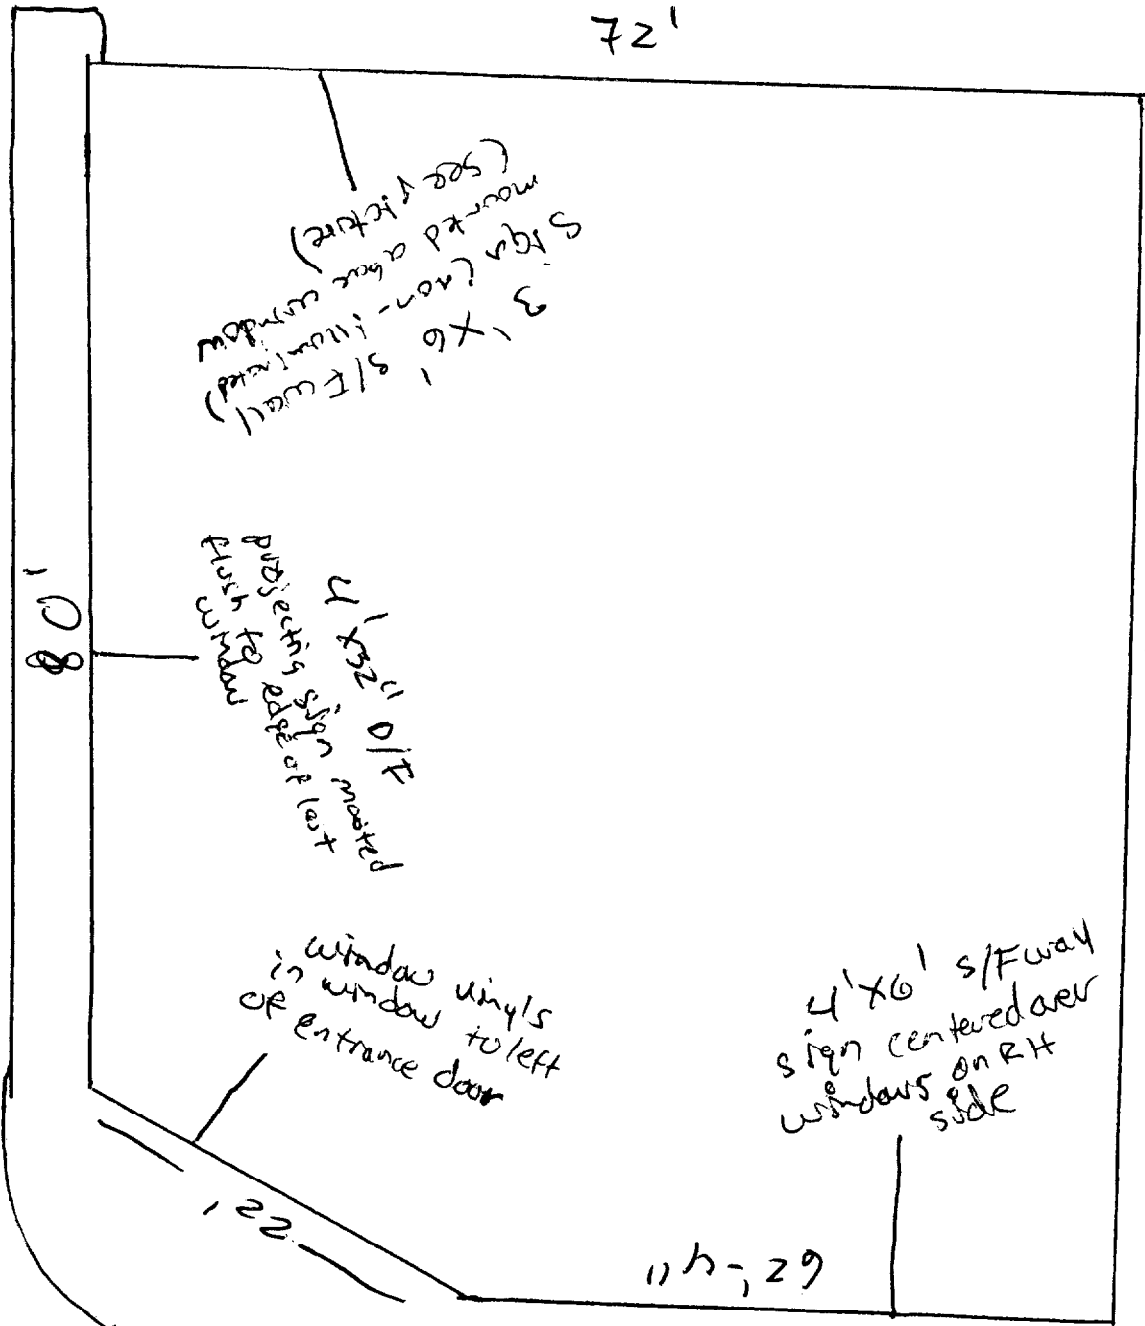 72'
3'X6' S/F wall
Sign (non-illuminated)
mounted above window
(see picture)
80'
4'X32" D/F
projecting sign mounted
flush to edge of last
window
window vinyls
in window to left
of entrance door
4'X6' S/F wall
sign centered over
windows on RH
side
22'
62'-4"